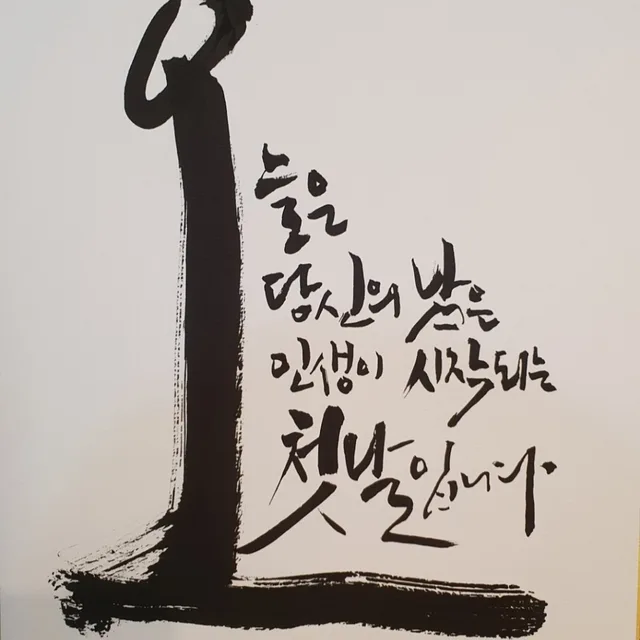 오늘은
당신의 남은
인생이 시작되는
첫날입니다.